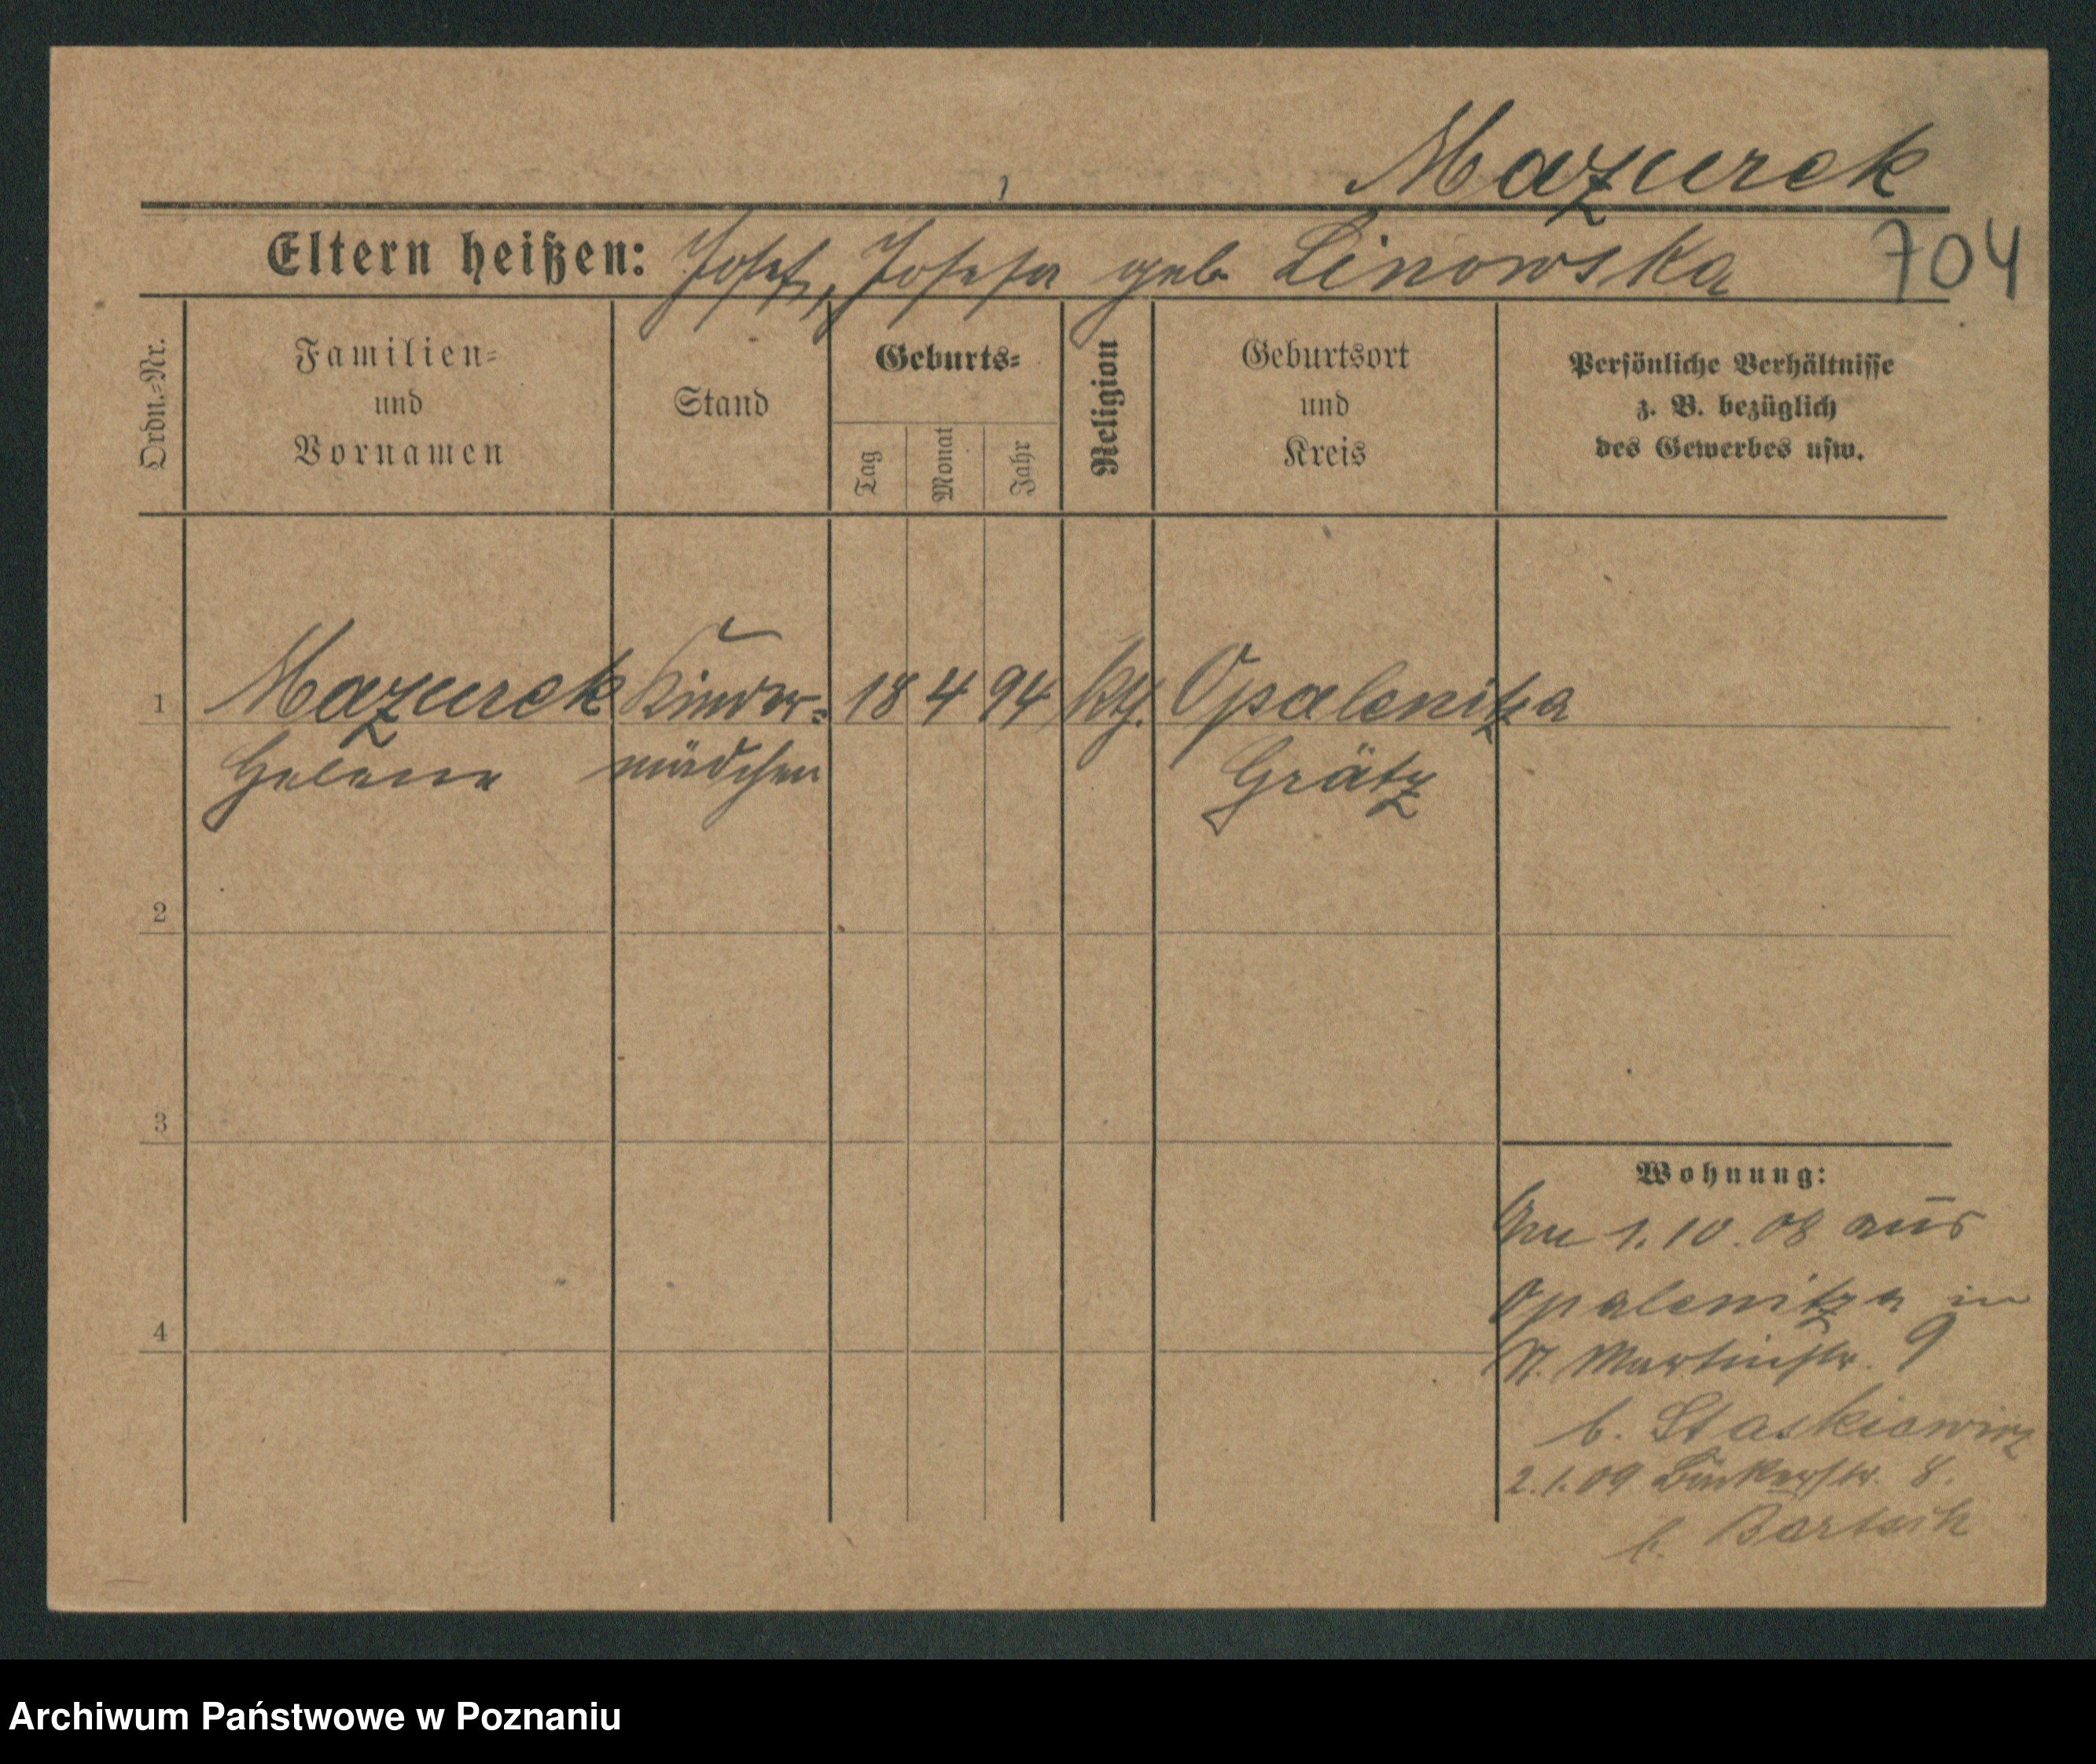 Mazurek
Eltern heißen: Josef, Josefa geb. Linowska 704
Ordn.=Nr.
Familien=
und
Vornamen
Stand
Geburts=
Tag
Monat
Jahr
Religion
Geburtsort
und
Kreis
Persönliche Verhältnisse
z. B. bezüglich
des Gewerbes usw.
1 Mazurek Kinder= 18 4 94 kth. Opalenitza
Helene mädchen Grätz
2
3
4
Wohnung:
1.10.08 aus
Opalenitza in
St. Martinstr. 9
b. Staskiewicz
2.1.09 Bäckerstr. 8.
b. Bartsch
Archiwum Państwowe w Poznaniu